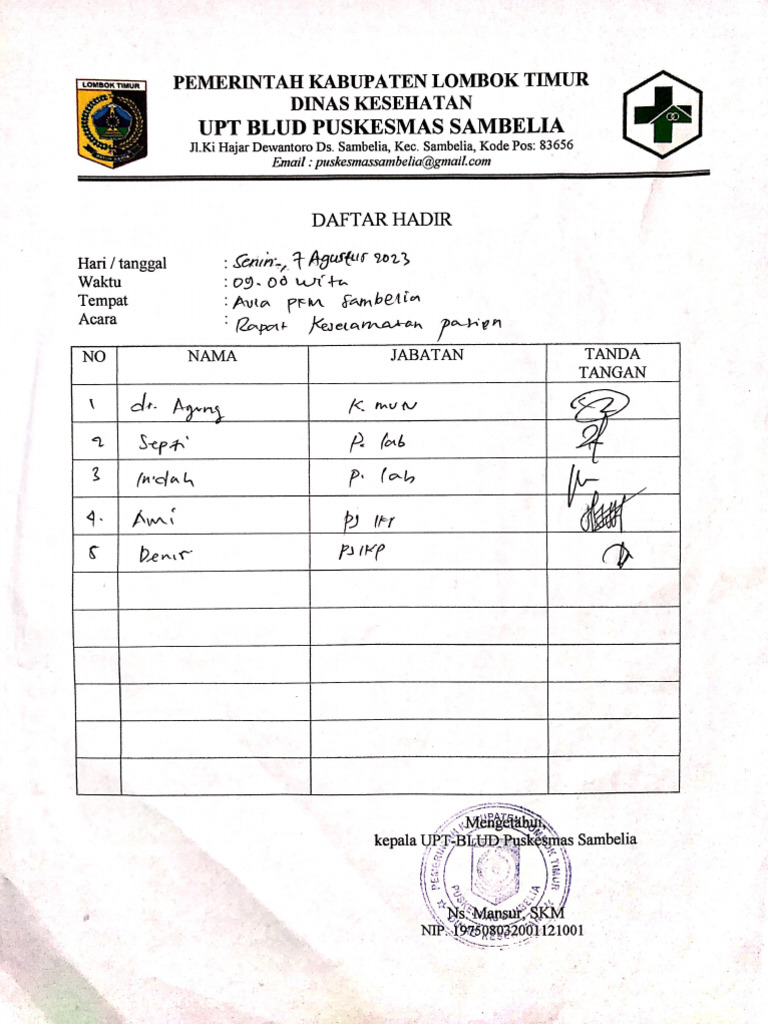 LOMBOK TIMUR
PEMERINTAH KABUPATEN LOMBOK TIMUR
DINAS KESEHATAN
UPT BLUD PUSKESMAS SAMBELIA
Jl.Ki Hajar Dewantoro Ds. Sambelia, Kec. Sambelia, Kode Pos: 83656
Email : puskesmassambelia@gmail.com
DAFTAR HADIR
Hari / tanggal : Senin, 7 Agustus 2023
Waktu : 09.00 wita
Tempat : Aula PKM Sambelia
Acara : Rapat Keselamatan pasien
NO NAMA JABATAN TANDA TANGAN
1 dr. Agung K. mun
2 Septi P. lab
3 Indah P. lab
4. Ami PJ
5 Denis PJ IKP
Mengetahui,
kepala UPT-BLUD Puskesmas Sambelia
PEMERINTAH KABUPATEN LOMBOK TIMUR
PUSKESMAS SAMBELIA
DINAS KESEHATAN
Ns. Mansur, SKM
NIP. 197508032001121001